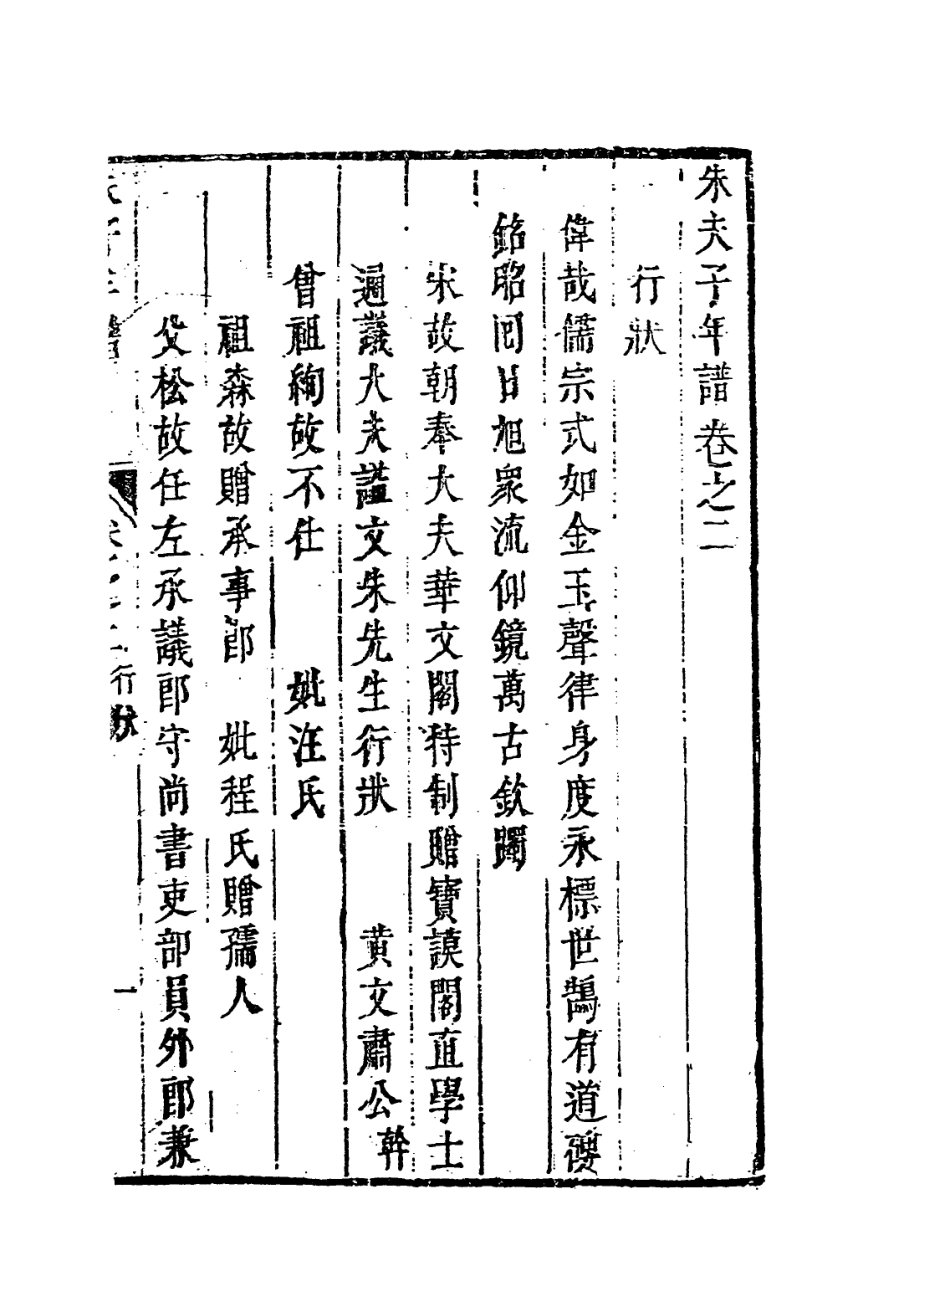 朱夫子年譜卷之二
行狀
偉哉儒宗式如金玉聲律身度永標世鵠有道殁
銘昭囘日旭衆流仰鏡萬古欽躅
宋故朝奉大夫華文閣待制贈寶謨閣直學士
通議大夫謚文朱先生行狀 黄文肅公幹
曾祖絢故不仕 妣汪氏
祖森故贈承事郎 妣程氏贈孺人
父松故任左承議郎守尚書吏部員外郎兼
行狀 一